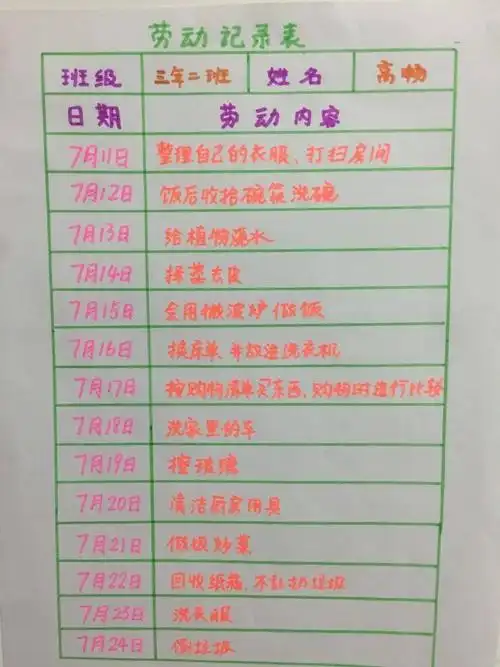 劳动记录表
班级 三年二班 姓名 高畅
日期 劳动内容
7月11日 整理自己的衣服、打扫房间
7月12日 饭后收拾碗筷洗碗
7月13日 给植物浇水
7月14日 择菜去皮
7月15日 会用微波炉做饭
7月16日 换床单并放进洗衣机
7月17日 按购物清单买东西,购物时进行比较
7月18日 洗家里的车
7月19日 擦玻璃
7月20日 清洁厨房用具
7月21日 做饭炒菜
7月22日 回收纸箱,不乱扔垃圾
7月23日 洗衣服
7月24日 倒垃圾